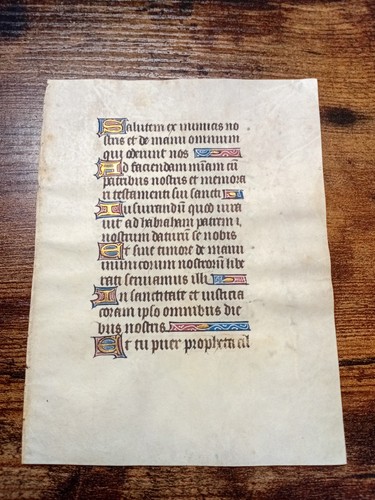 Salutem ex inimicis no
stris et de manu omnium
qui oderunt nos
Ad faciendam miam cū
patribus nostris et memora
ri testamenti sui sancti
Iusiurandū quod iura
uit ad habraham patrem
nostrum daturū se nobis
Ut sine timore de manu
inimicorum nostrorū libe
rati seruiamus illi
In sanctitate et iusticia
coram ipso omnibus die
bus nostris
Et tu puer propheta